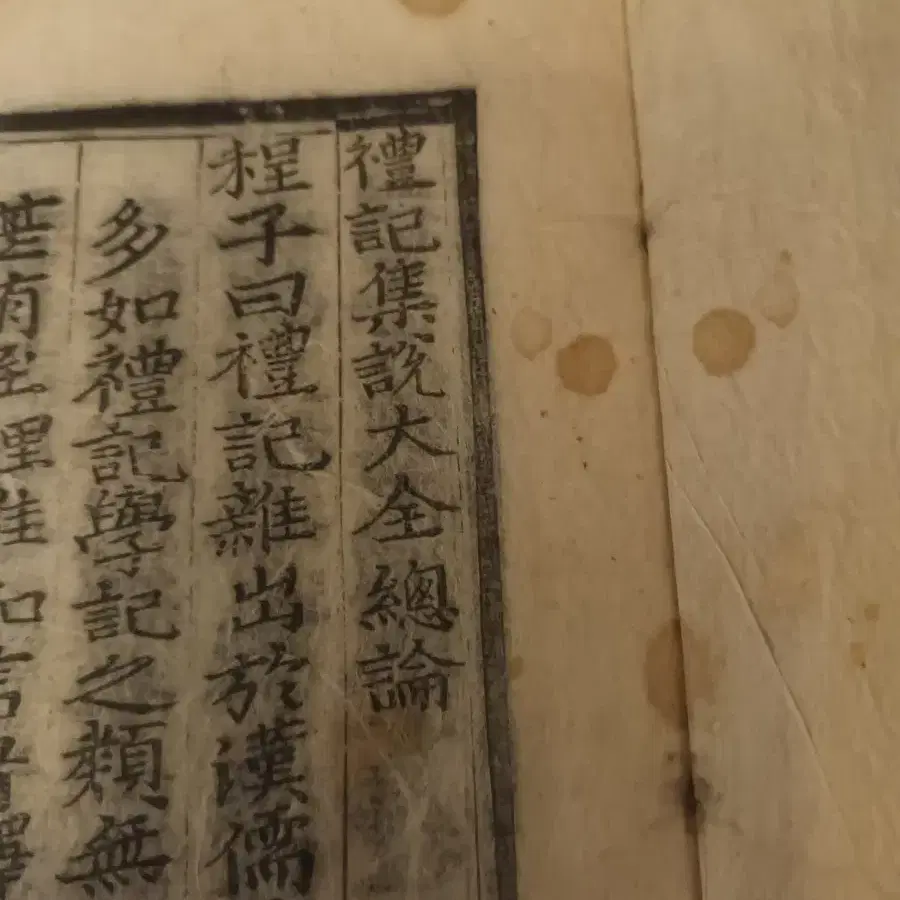 禮記集說大全總論
程子曰禮記雜出於漢儒
多如禮記學記之類無
甚有至理惟知言者擇